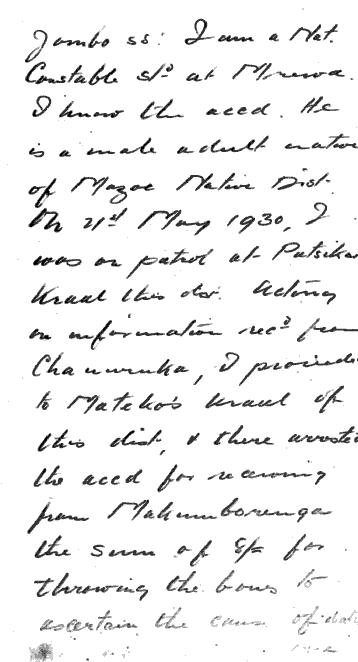 Jombo ss: I am a Nat.
Constable stnd at Mrewa.
I know the accd. He
is a male adult native
of Mazoe Native Dist.
On 21st May 1930, I
was on patrol at
Kraal this dist. Acting
on information recd from
I proceede
to Mateko's kraal of
this dist, & there arrested
the accd for receiving
from Makumborenga
the sum of 5/= for
throwing the bones to
ascertain the cause of